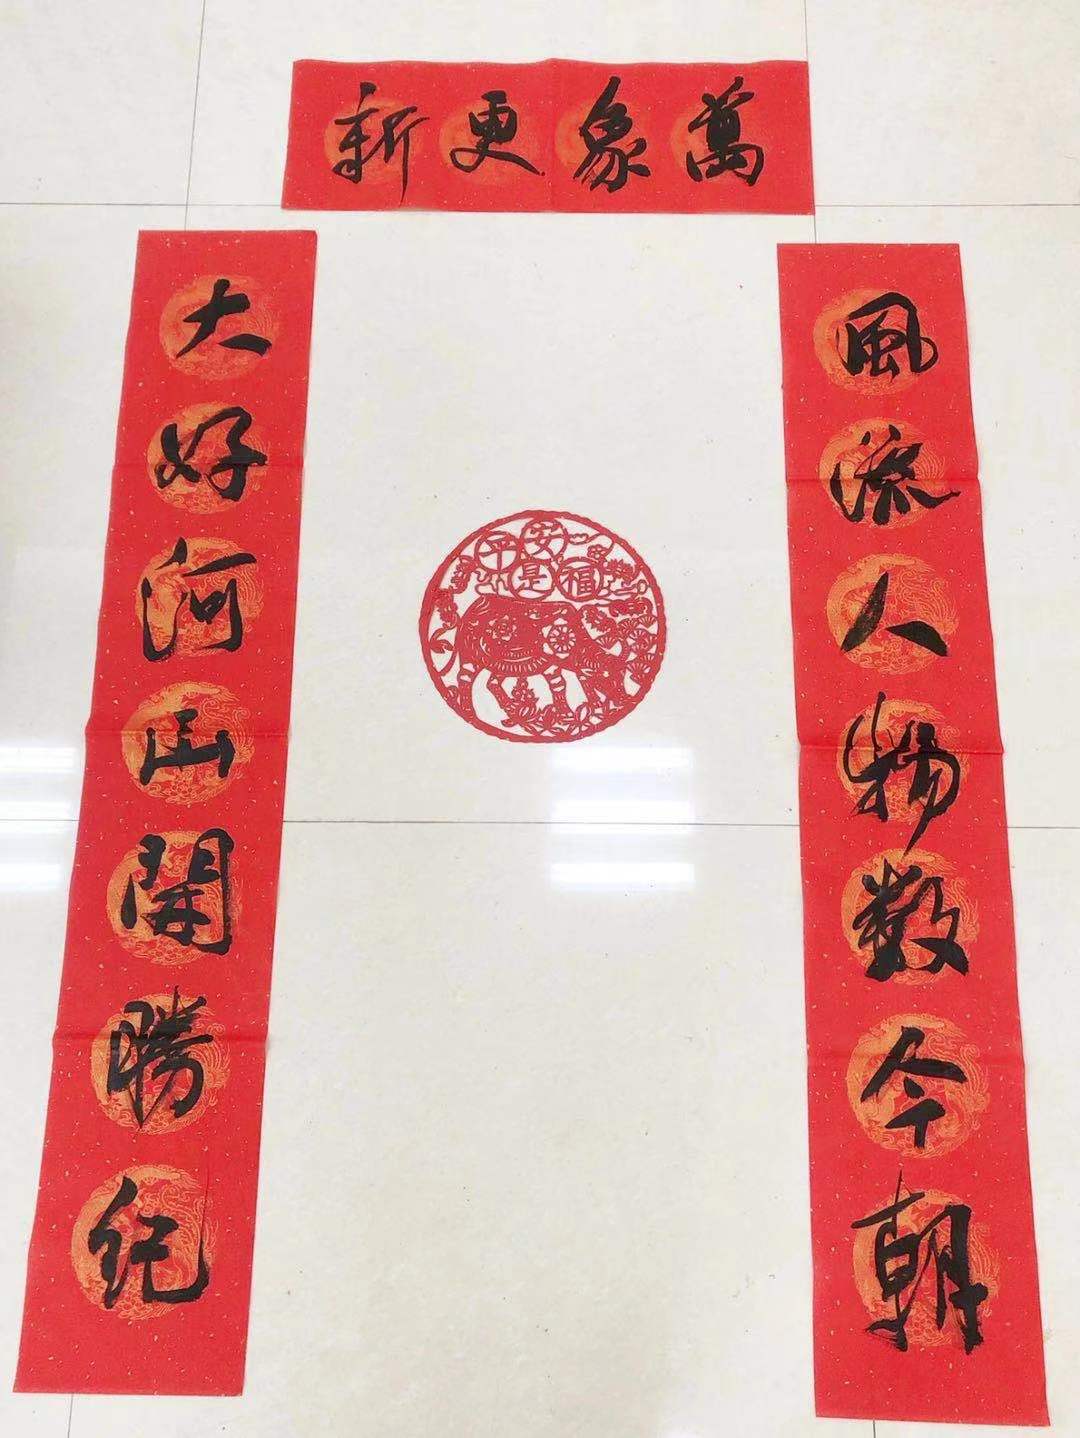 萬象更新
風流人物数今朝
大好河山開勝纪
平安是福